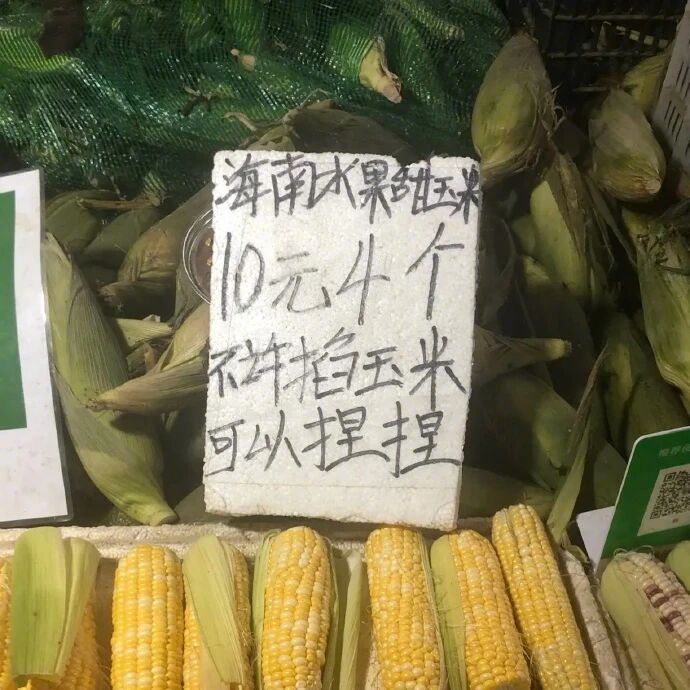 海南水果甜玉米
10元4个
不许掐玉米
可以捏捏